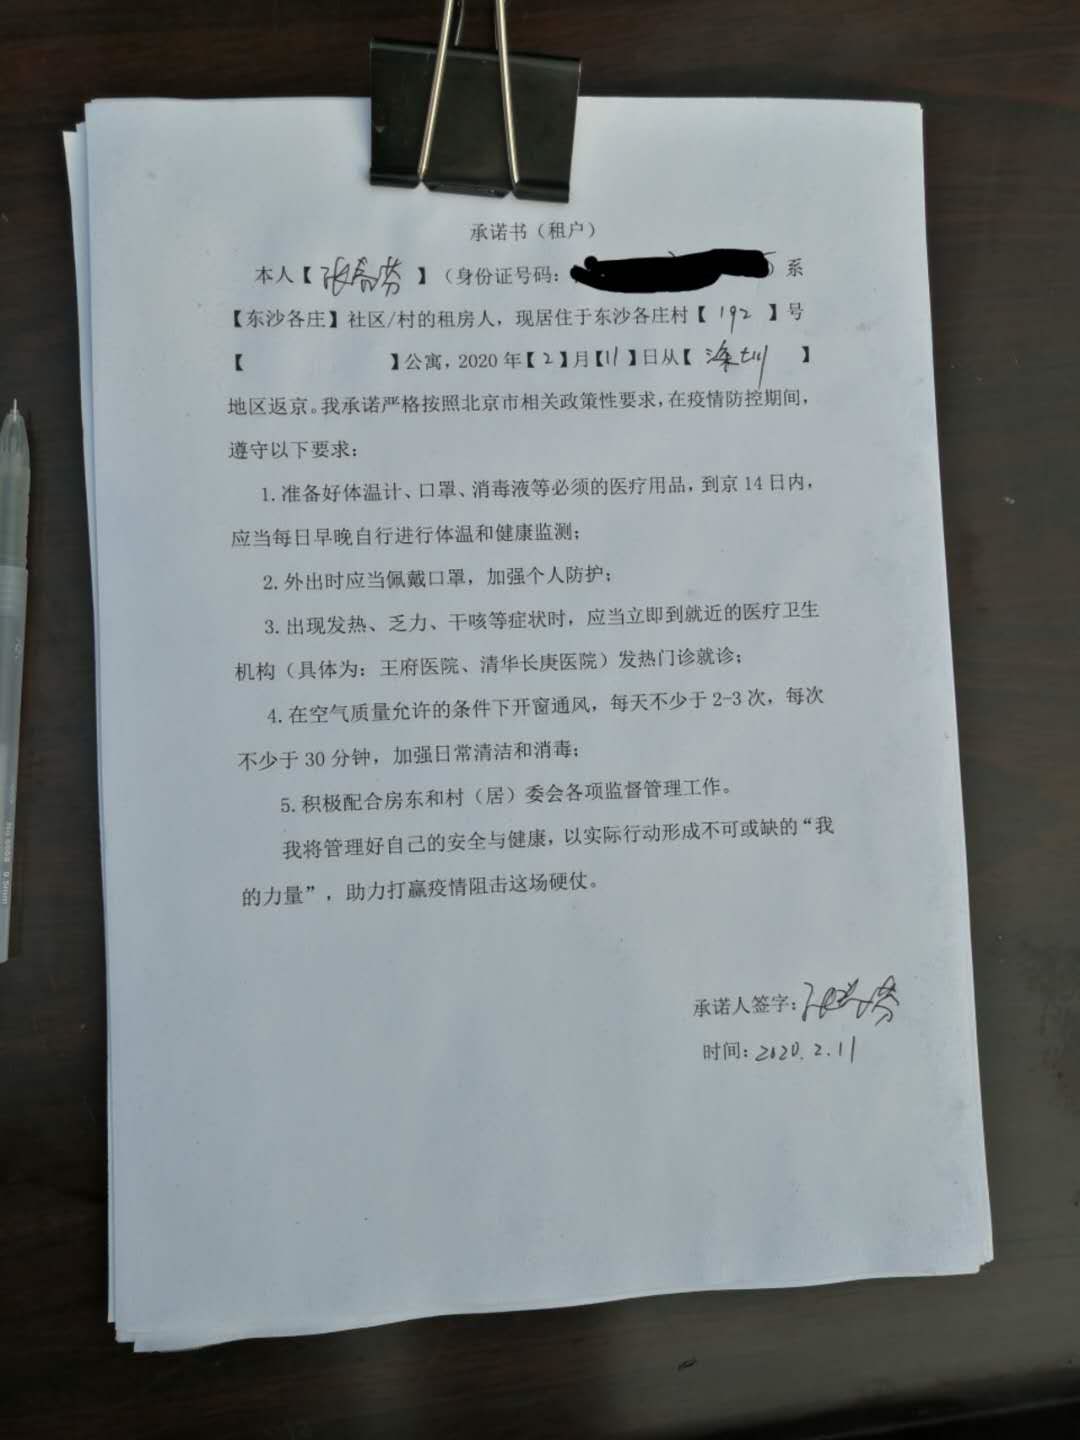 承诺书（租户）
本人【张春芬】（身份证号码：）系
【东沙各庄】社区/村的租房人，现居住于东沙各庄村【192】号
【 】公寓，2020年【2】月【11】日从【涿州】
地区返京。我承诺严格按照北京市相关政策性要求，在疫情防控期间，
遵守以下要求：
1.准备好体温计、口罩、消毒液等必须的医疗用品，到京14日内，
应当每日早晚自行进行体温和健康监测；
2.外出时应当佩戴口罩，加强个人防护；
3.出现发热、乏力、干咳等症状时，应当立即到就近的医疗卫生
机构（具体为：王府医院、清华长庚医院）发热门诊就诊；
4.在空气质量允许的条件下开窗通风，每天不少于2-3次，每次
不少于30分钟，加强日常清洁和消毒；
5.积极配合房东和村（居）委会各项监督管理工作。
我将管理好自己的安全与健康，以实际行动形成不可或缺的“我
的力量”，助力打赢疫情阻击这场硬仗。
承诺人签字：张春芬
时间：2020.2.11